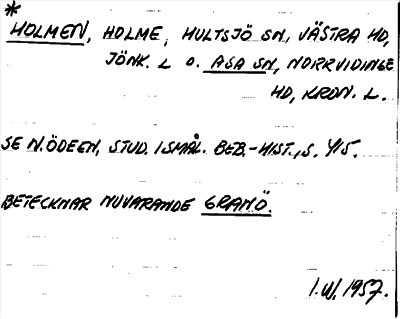 *
HOLMEN, HOLME, HULTSJÖ SN, VÄSTRA HD,
JÖNK. L O. ASA SN, NORRVIDINGE
HD, KRON. L.
SE N. ÖDEEN, STUD. I SMÅL. BEB.-HIST., S. 415.
BETECKNAR NUVARANDE GRANÖ.
I.W. 1957.